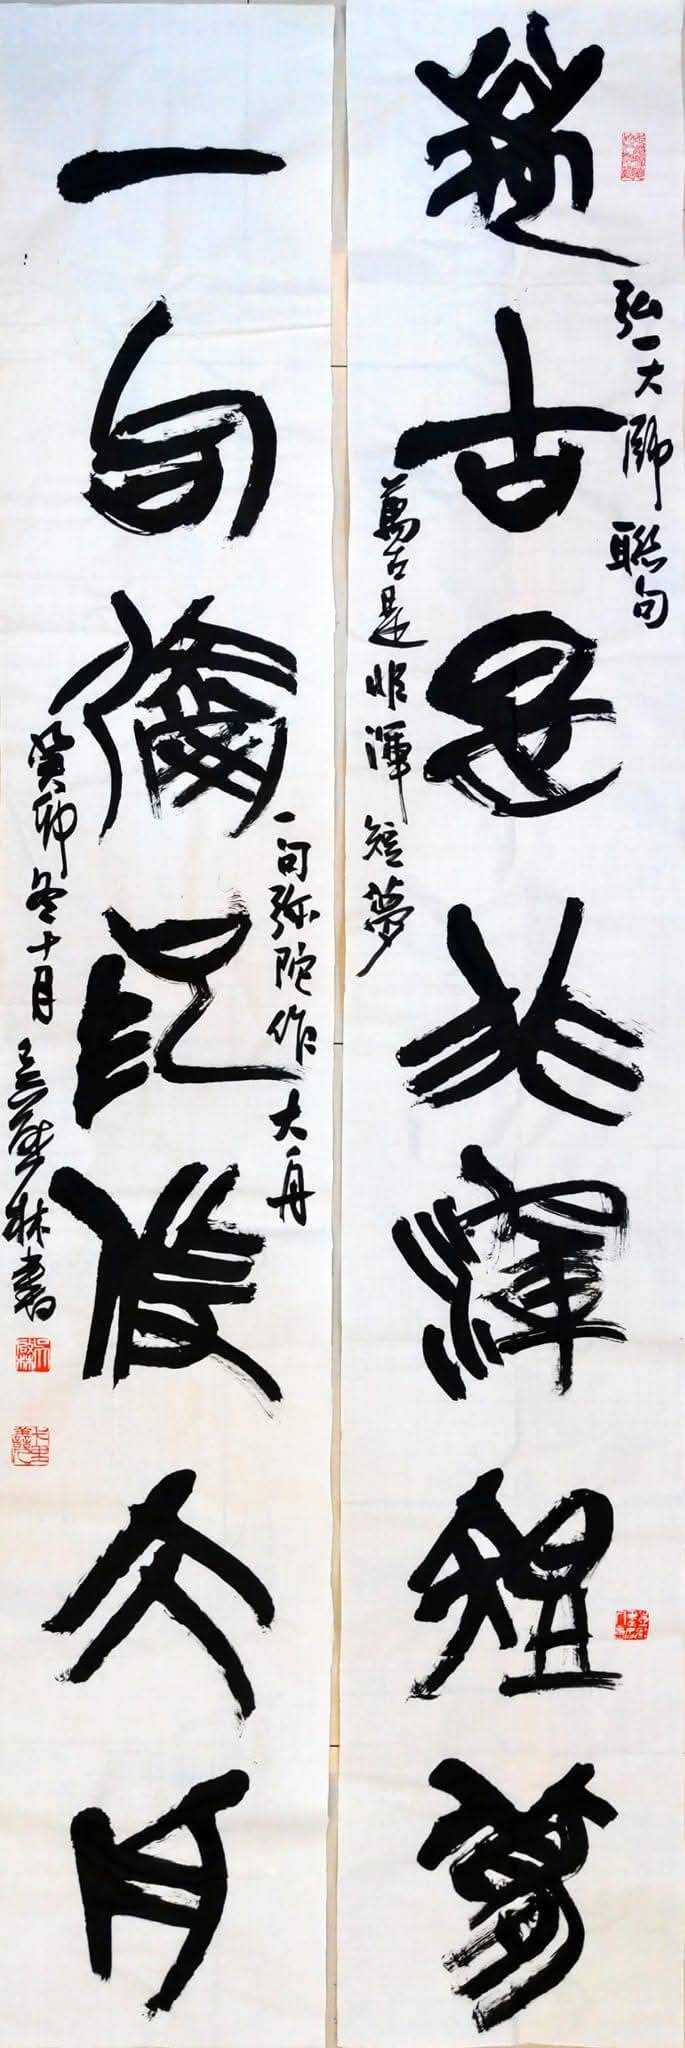 弘一大師聯句
萬古是非渾短夢
萬古是非渾短夢
一句弥陀作大舟
一句彌陀作大舟
癸卯冬十月 林書